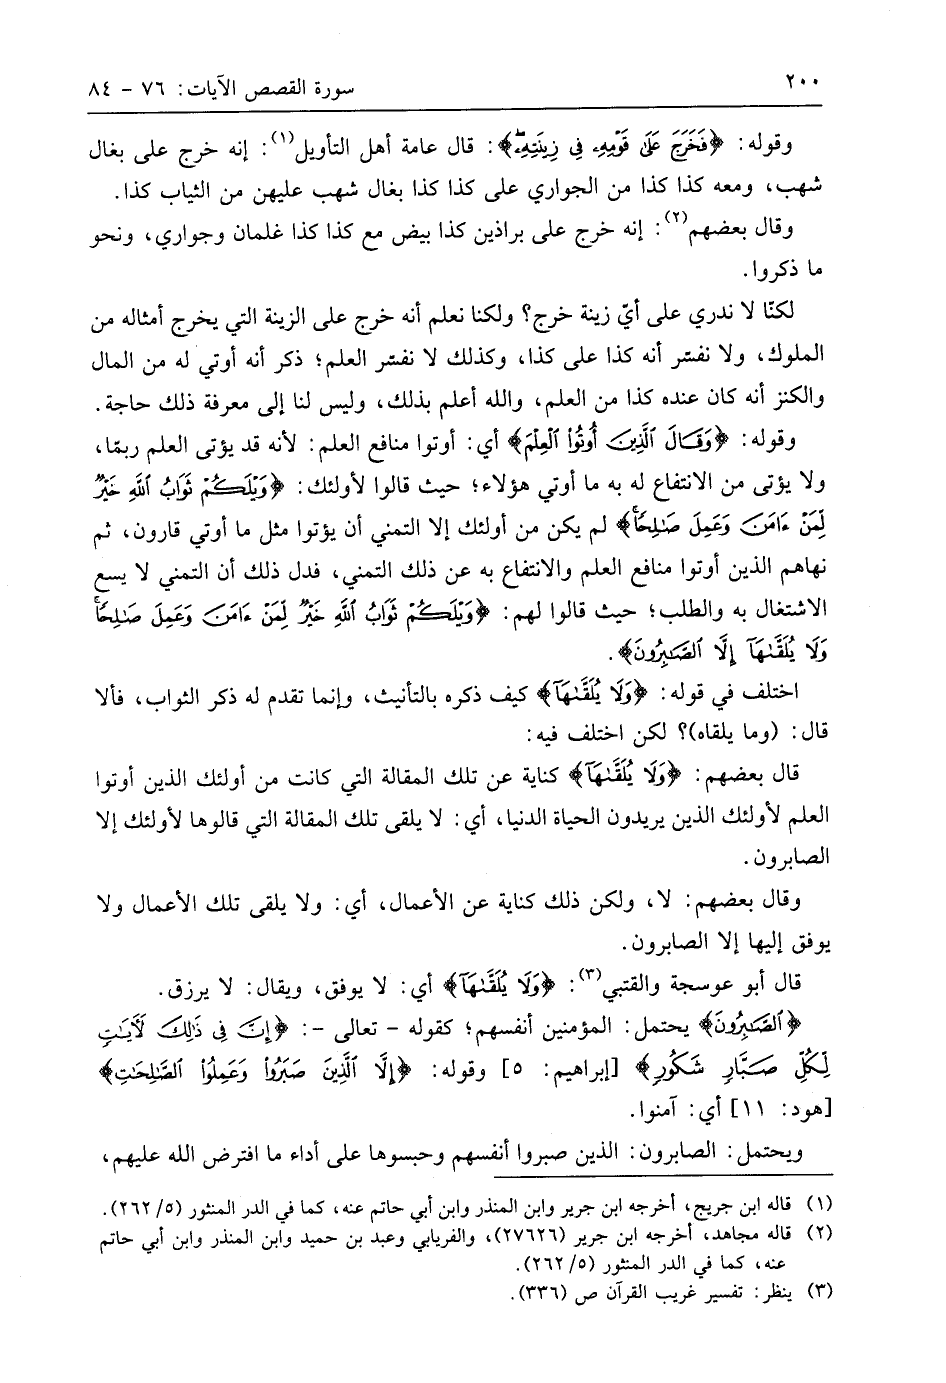 ٢٠٠
سورة القصص الآيات: ٧٦ - ٨٤
وقوله: ﴿فَخَرَجَ عَلَىٰ قَوْمِهِۦ فِي زِينَتِهِۦۖ﴾: قال عامة أهل التأويل(١): إنه خرج على بغال
شهب، ومعه كذا كذا من الجواري على كذا كذا بغال شهب عليهن من الثياب كذا.
وقال بعضهم(٢): إنه خرج على براذين كذا بيض مع كذا كذا غلمان وجواري، ونحو
ما ذكروا.
لكنّا لا ندري على أيّ زينة خرج؟ ولكنا نعلم أنه خرج على الزينة التي يخرج أمثاله من
الملوك، ولا نفسّر أنه كذا على كذا، وكذلك لا نفسّر العلم؛ ذكر أنه أوتي له من المال
والكنز أنه كان عنده كذا من العلم، والله أعلم بذلك، وليس لنا إلى معرفة ذلك حاجة.
وقوله: ﴿وَقَالَ ٱلَّذِينَ أُوتُوا۟ ٱلْعِلْمَ﴾ أي: أوتوا منافع العلم: لأنه قد يؤتى العلم ربمّا،
ولا يؤتى من الانتفاع له به ما أوتي هؤلاء؛ حيث قالوا لأولئك: ﴿وَيْلَكُمْ ثَوَابُ ٱللَّهِ خَيْرٌ
لِّمَنْ ءَامَنَ وَعَمِلَ صَـٰلِحًاۚ﴾ لم يكن من أولئك إلا التمني أن يؤتوا مثل ما أوتي قارون، ثم
نهاهم الذين أوتوا منافع العلم والانتفاع به عن ذلك التمني، فدل ذلك أن التمني لا يسع
الاشتغال به والطلب؛ حيث قالوا لهم: ﴿وَيْلَكُمْ ثَوَابُ ٱللَّهِ خَيْرٌ لِّمَنْ ءَامَنَ وَعَمِلَ صَـٰلِحًاۚ
وَلَا يُلَقَّىٰهَآ إِلَّا ٱلصَّـٰبِرُونَ﴾.
اختلف في قوله: ﴿وَلَا يُلَقَّىٰهَآ﴾ كيف ذكره بالتأنيث، وإنما تقدم له ذكر الثواب، فألا
قال: (وما يلقاه)؟ لكن اختلف فيه:
قال بعضهم: ﴿وَلَا يُلَقَّىٰهَآ﴾ كناية عن تلك المقالة التي كانت من أولئك الذين أوتوا
العلم لأولئك الذين يريدون الحياة الدنيا، أي: لا يلقى تلك المقالة التي قالوها لأولئك إلا
الصابرون.
وقال بعضهم: لا، ولكن ذلك كناية عن الأعمال، أي: ولا يلقى تلك الأعمال ولا
يوفق إليها إلا الصابرون.
قال أبو عوسجة والقتبي(٣): ﴿وَلَا يُلَقَّىٰهَآ﴾ أي: لا يوفق، ويقال: لا يرزق.
﴿ٱلصَّـٰبِرُونَ﴾ يحتمل: المؤمنين أنفسهم؛ كقوله - تعالى -: ﴿إِنَّ فِي ذَٰلِكَ لَآيَـٰتٍ
لِّكُلِّ صَبَّارٍ شَكُورٍ﴾ [إبراهيم: ٥] وقوله: ﴿إِلَّا ٱلَّذِينَ صَبَرُوا۟ وَعَمِلُوا۟ ٱلصَّـٰلِحَـٰتِ﴾
[هود: ١١] أي: آمنوا.
ويحتمل: الصابرون: الذين صبروا أنفسهم وحبسوها على أداء ما افترض الله عليهم،
(١) قاله ابن جريج، أخرجه ابن جرير وابن المنذر وابن أبي حاتم عنه، كما في الدر المنثور (٥/ ٢٦٢).
(٢) قاله مجاهد، أخرجه ابن جرير (٢٧٦٢٦)، والفريابي وعبد بن حميد وابن المنذر وابن أبي حاتم
عنه، كما في الدر المنثور (٥/ ٢٦٢).
(٣) ينظر: تفسير غريب القرآن ص (٣٣٦).